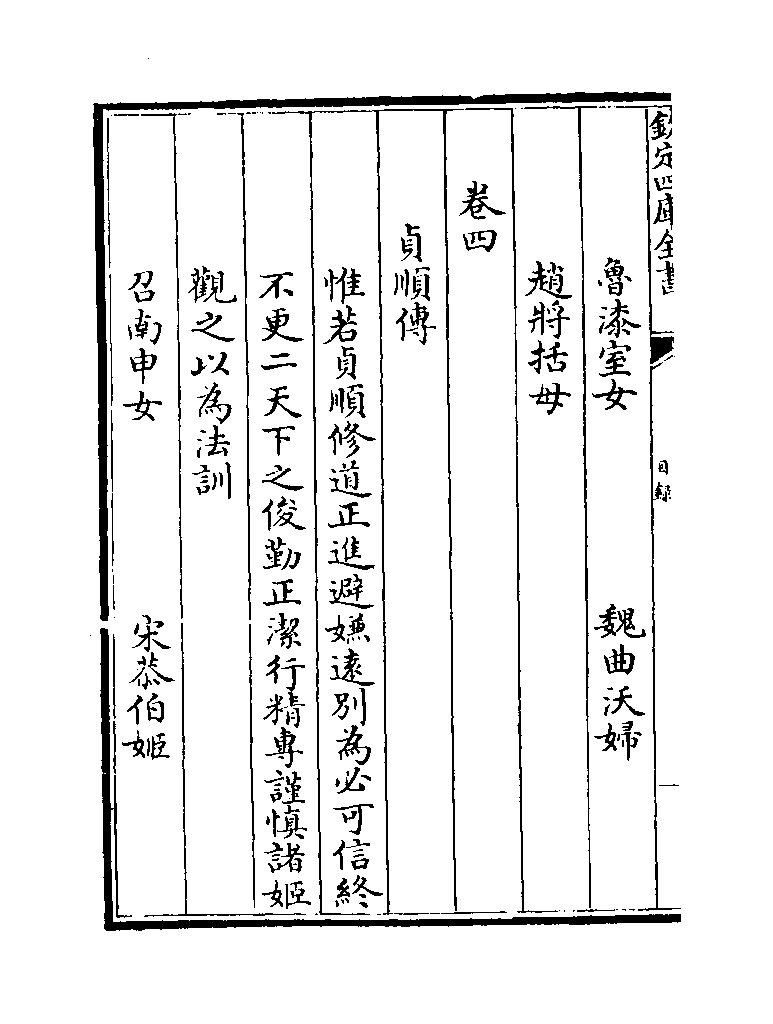 欽定四庫全書
目録
魯漆室女 魏曲沃婦
趙將括母
卷四
貞順傳
惟若貞順修道正進避嫌遠別為必可信終
不更二天下之俊勤正潔行精專謹慎諸姬
觀之以為法訓
召南申女 宋恭伯姬